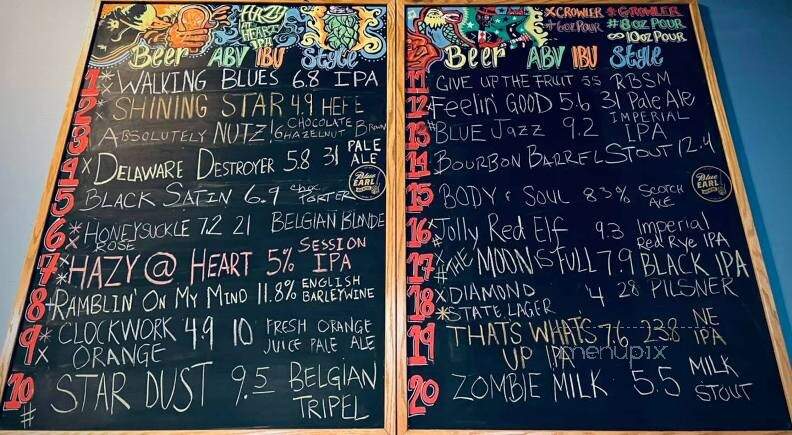 HAZY
AT
HEART
IPA
Beer ABV IBU Style
1 * x WALKING BLUES 6.8 IPA
2 * SHINING STAR 4.9 HEFE
3 ABSOLUTELY NUTZ! 6 CHOCOLATE HAZELNUT BROWN
4 x DELAWARE DESTROYER 5.8 31 PALE ALE
5 BLACK SATIN 6.9 CHOC PORTER
6 * x HONEYSUCKLE ROSE 7.2 21 BELGIAN BLONDE
7 * * HAZY @ HEART 5% SESSION IPA
8 # RAMBLIN' ON MY MIND 11.8% ENGLISH BARLEYWINE
9 * x CLOCKWORK ORANGE 4.9 10 FRESH ORANGE JUICE PALE ALE
10 # STAR DUST 9.5 BELGIAN TRIPEL
x CROWLER * GROWLER
+ 6oz POUR # 8oz POUR
∞ 10oz POUR
Beer ABV IBU Style
11 GIVE UP THE FRUIT 5.5 RBSM
12 Feelin' GOOD 5.6 31 Pale Ale
13 # BLUE JAZZ 9.2 IMPERIAL IPA
14 BOURBON BARREL STOUT 12.4
15 BODY & SOUL 8.3% SCOTCH ALE
16 # Jolly Red Elf 9.3 Imperial Red Rye IPA
17 * # THE MOON IS FULL 7.9 BLACK IPA
18 x * DIAMOND STATE LAGER 4 28 PILSNER
19 THATS WHAT'S UP IPA 7.6 23.8 NE IPA
20 ZOMBIE MILK 5.5 MILK STOUT
Blue EARL
Blue EARL
menupix